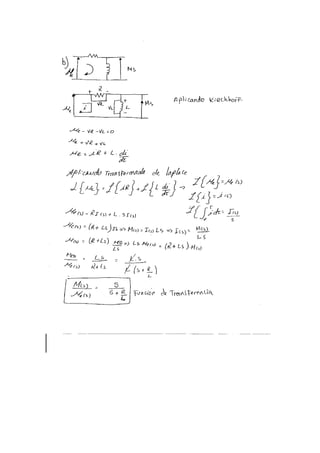 b)
Me
Ms
Z
+ VR -
Me
i
VL
L
Ms
Aplicando Kirchhoff
Me - VR - VL = 0
Me = VR + VL
Me = iR + L di/dt
Aplicando Transformada de laplace
L{Me} = L{iR} + L{L di/dt} →
L{Me} = Me(s)
L{i} = i(s)
L{∫i dt = I(s)/s
Me(s) = R I(s) + L . S I(s)
Me(s) = (R + Ls) Is => M(s) = I(s) Ls => I(s) = M(s)/LS
Me(s) = (R + Ls) Ms/LS => Ls Me(s) = (R + Ls) M(s)
Ms/Me(s) = L S/R + Ls = L S/L (S + R/L)
M(s)/Me(s) = S/S + R/L Funcion de Transferencia